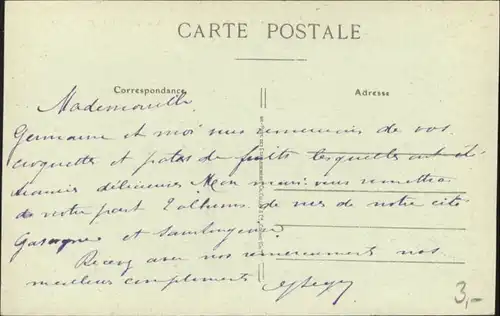 CARTE POSTALE
Correspondance
Adresse
Mademoiselle
Germaine et moi vous remercions de vos
croquettes et pates de fruits lesquelles ont été
trouvées délicieuses Mon mari vous remettra
de votre part 2 albums de vues de notre cité
et
Recevez avec nos remerciements nos
meilleurs compliments
3,-